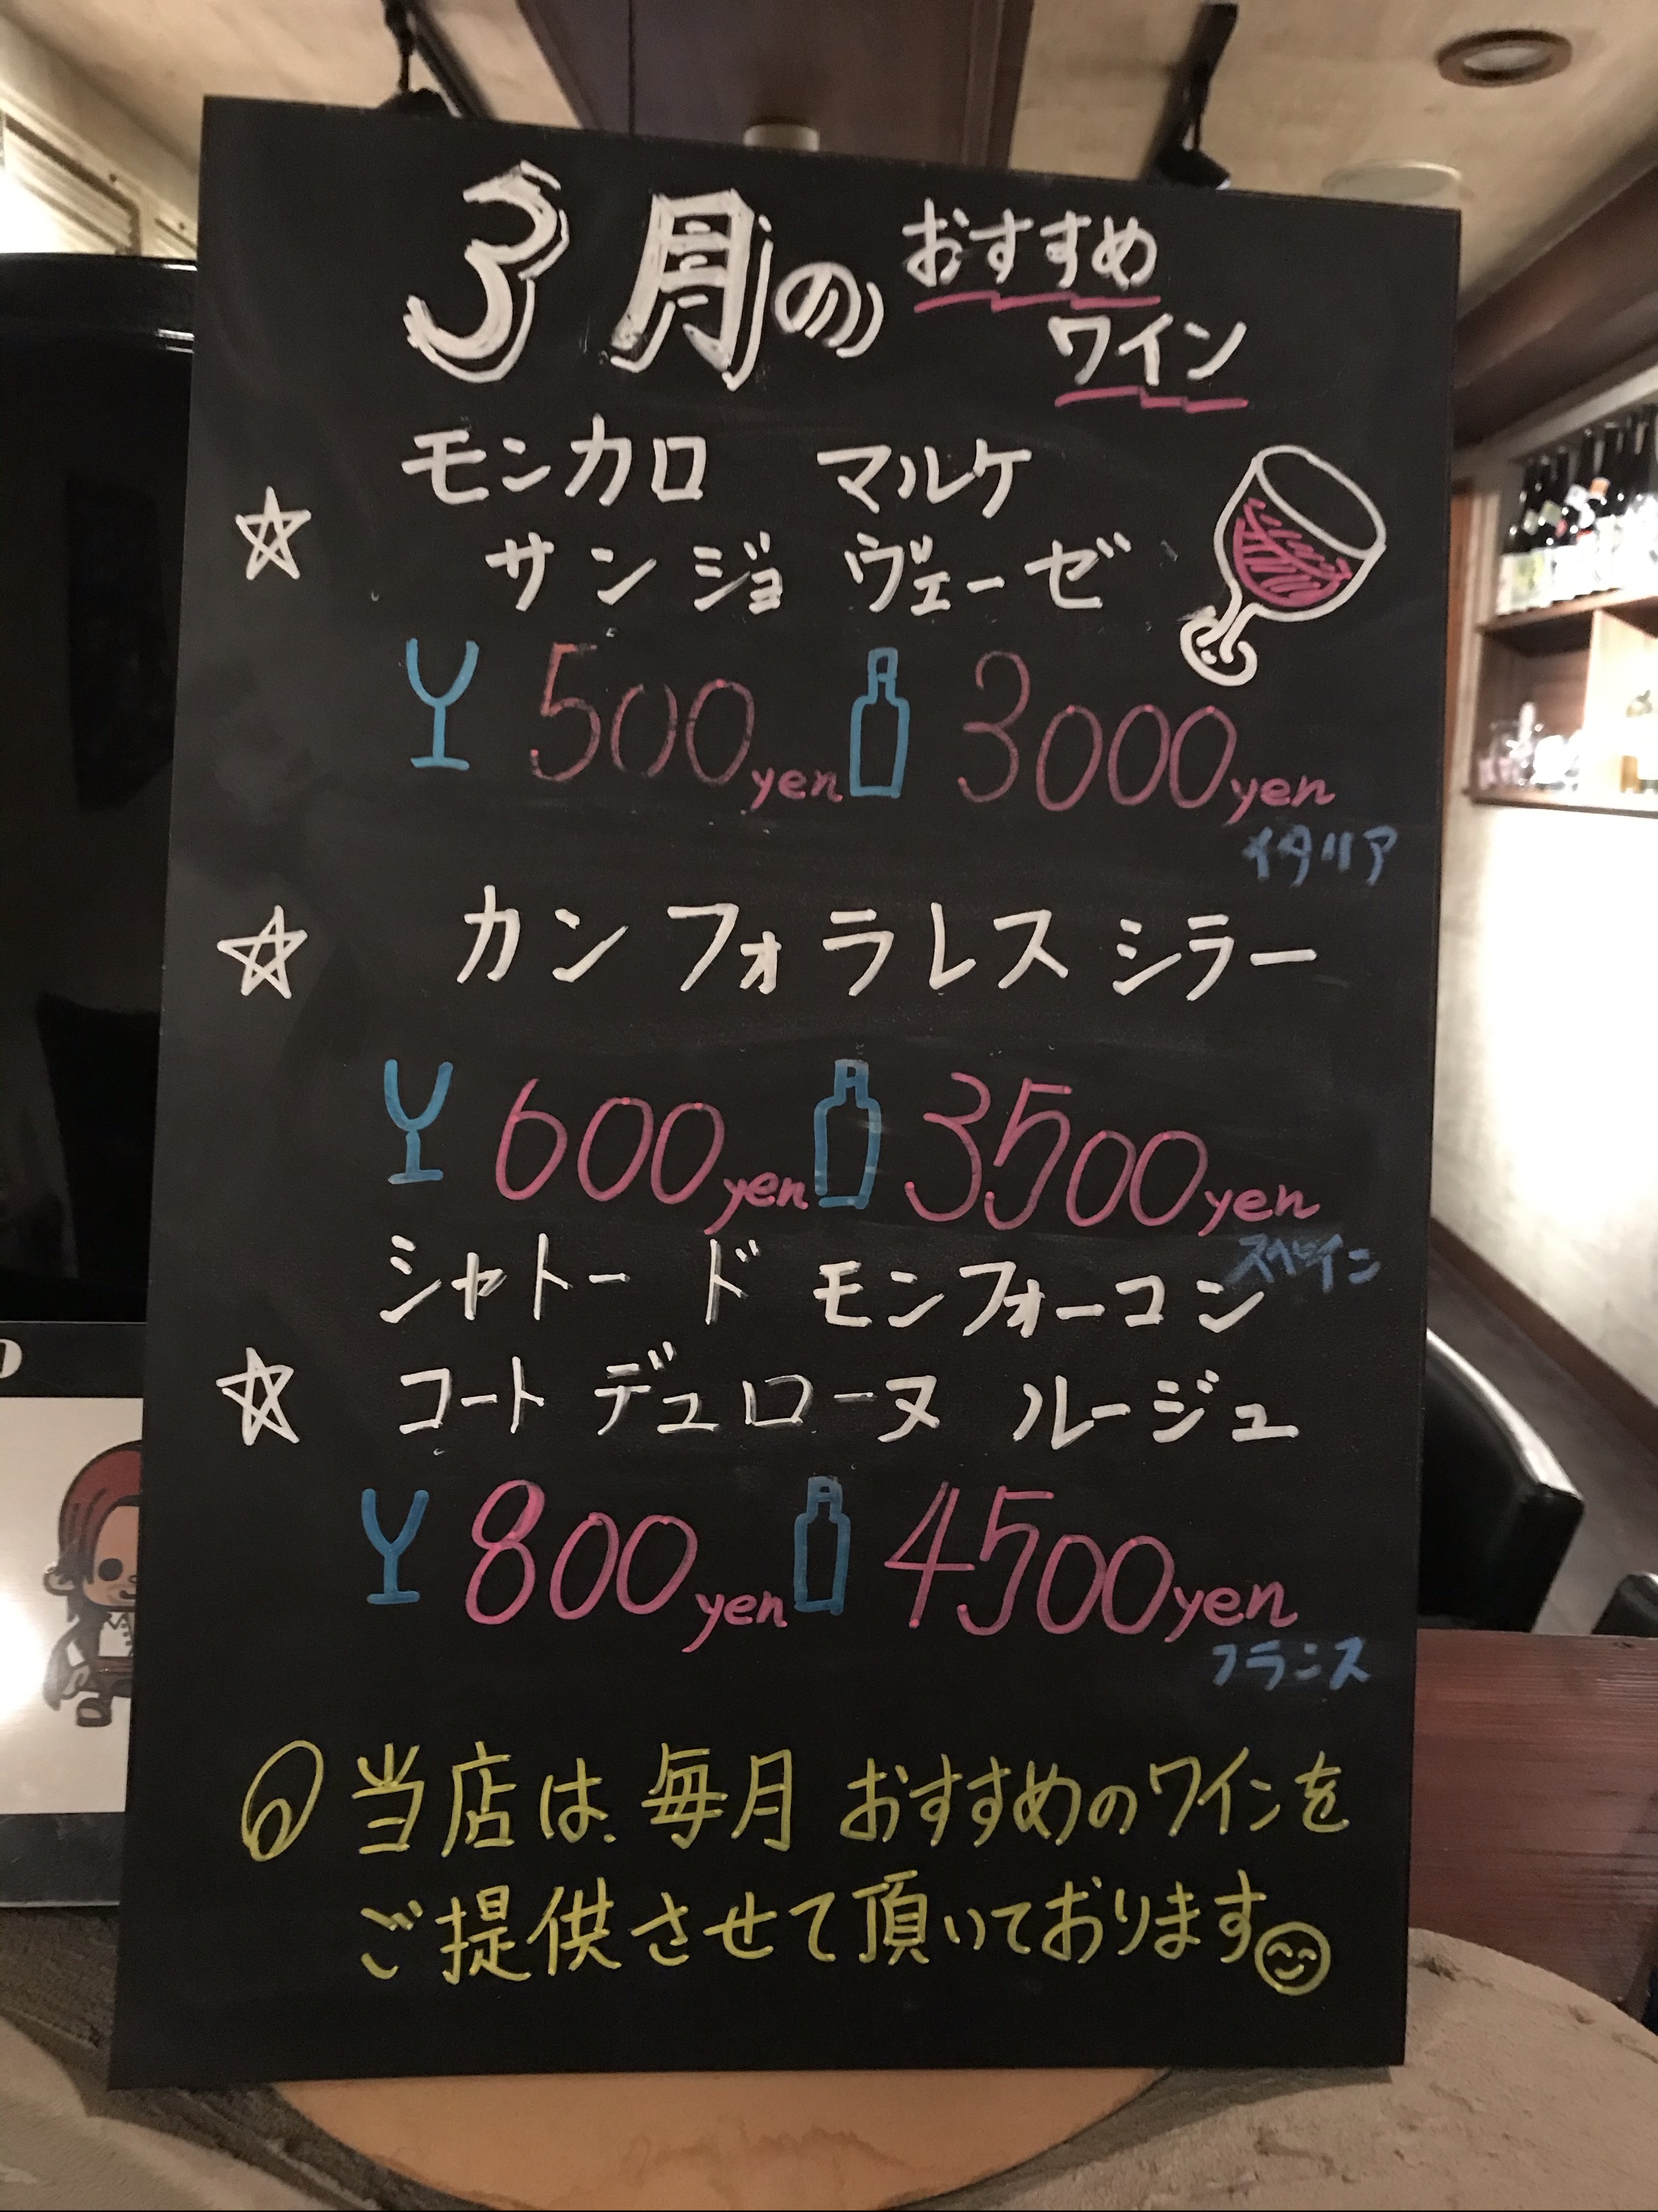 3月の おすすめ
ワイン
☆ モンカロ マルケ
サンジョヴェーゼ
500yen 3000yen
イタリア
☆ カンフォラレスシラー
600yen 3500yen
スペイン
シャトー ド モンフォーコン
☆ コート デュローヌ ルージュ
800yen 4500yen
フランス
当店は、毎月 おすすめのワインを
ご提供させて頂いております